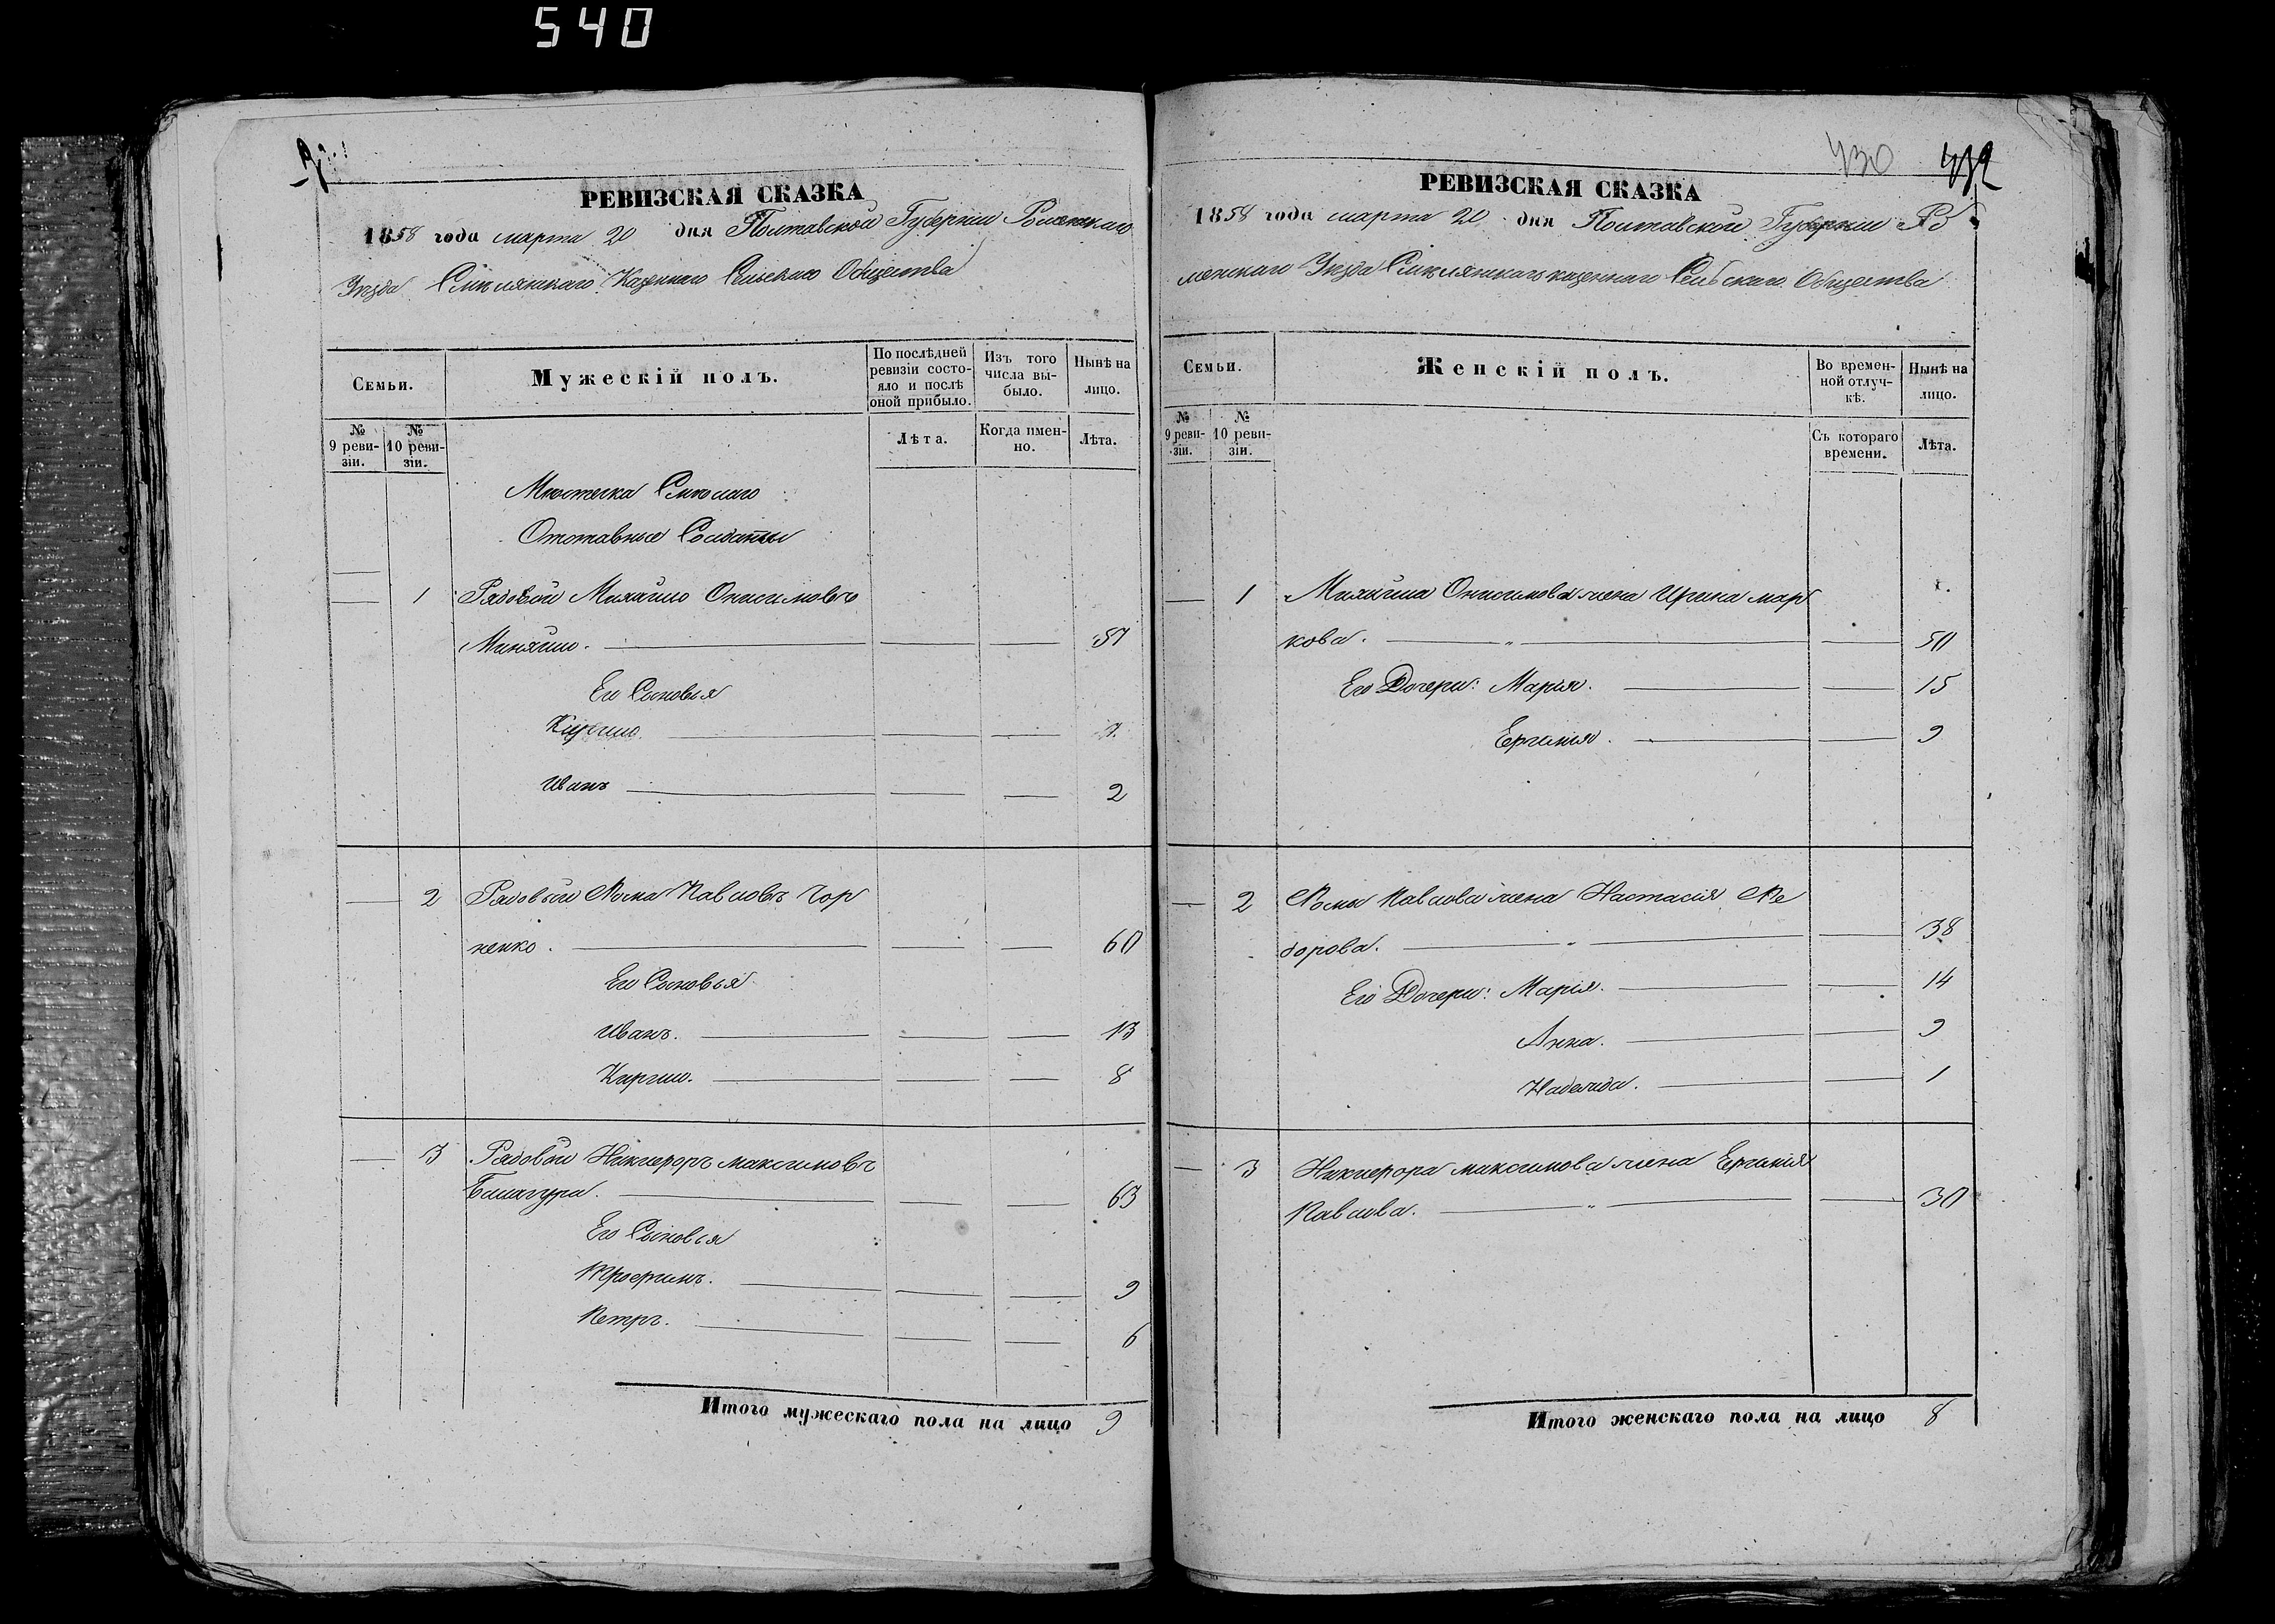 540
РЕВИЗСКАЯ СКАЗКА
1858 года марта 20 дня Полтавской Губернии Роменскаго
Уезда Смѣлянскаго Казеннаго Сельскаго Общества
Семьи.
Мужескій полъ.
По послѣдней ревизіи состояло и послѣ оной прибыло.
Изъ того числа выбыло.
Нынѣ на лицо.
№ 9 ревизіи.
№ 10 ревизіи.
Лѣта.
Когда именно.
Лѣта.
Мѣстечка Смѣлаго
Отставные Солдаты
1 Рядовой Михайло Онисимовъ
57
Его Сыновья
Кирило 7
Иванъ 2
2 Рядовый Ѳома Павловъ Гор
ненко. 60
Его Сыновья
Иванъ. 13
Кирило. 8
3 Рядовой Никифоръ Максимовъ
63
Его Сыновья
Трофимъ. 9
Петръ. 6
Итого мужескаго пола на лицо 9
430 432
РЕВИЗСКАЯ СКАЗКА
1858 года марта 20 дня Полтавской Губернии Ро
менскаго Уезда Смѣлянскаго казеннаго Сельскаго Общества
Семьи.
Женскій полъ.
Во временной отлучкѣ.
Нынѣ на лицо.
№ 9 ревизіи.
№ 10 ревизіи.
Съ котораго времени.
Лѣта.
1 Михайла Онисимова жена Ирина Мар
кова. " 50
Его Дочери: Марія. 15
Ефимия. 9
2 Ѳомы Павлова жена Настасія Ѳе
дорова. " 38
Его Дочери: Марія. 14
Анна. 9
Надежда. 1
3 Никифора Максимова жена Ефимия
Павлова. " 30
Итого женскаго пола на лицо 8